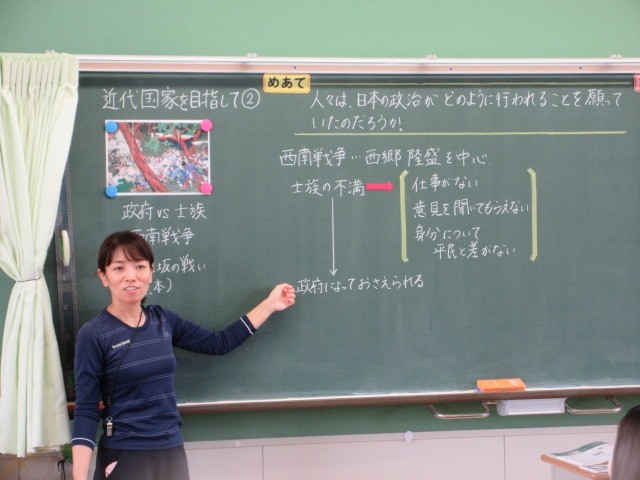 近代国家を目指して②
めあて
人々は、日本の政治が どのように行われることを願って
いたのだろうか。
西南戦争…西郷隆盛を中心
士族の不満
仕事がない
意見を聞いてもらえない
身分について
平民と差がない
政府によっておさえられる
政府 vs 士族
西南戦争
坂の戦い
本）